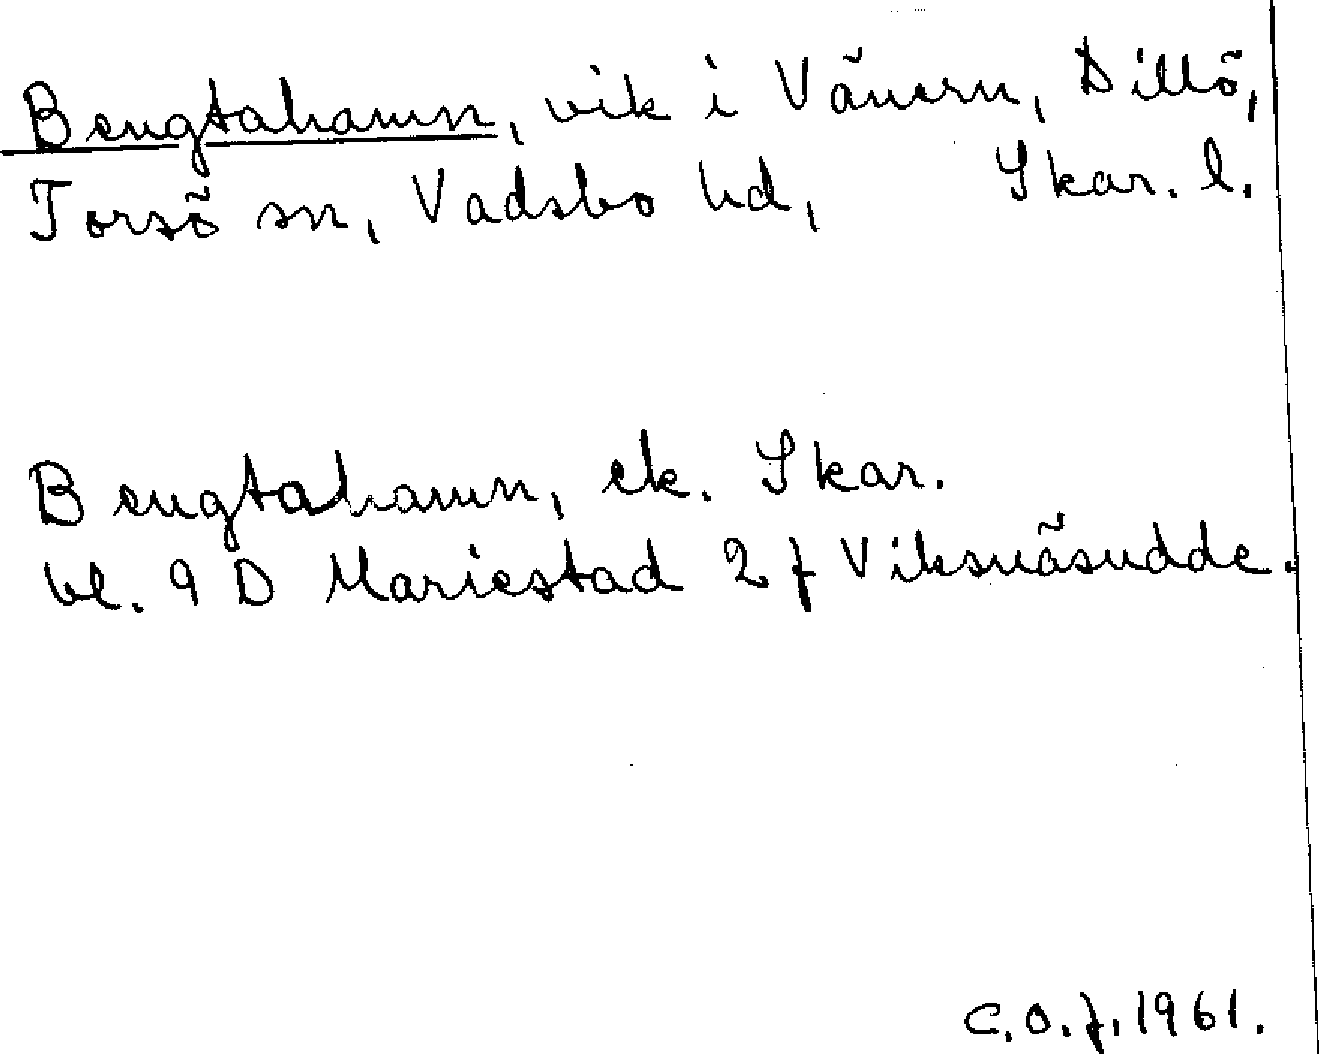 Bengtahamn, vik i Vänern, Dillö,
Torsö sn, Vadsbo hd, Skar. l.
Bengtahamn, ek. Skar.
bl. 9 D Mariestad 2 f Viksnäsudde.
C.O.f. 1961.